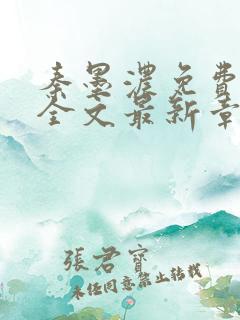 秦墨濃免費
全文最新章
張君寶
未經同意禁止轉載